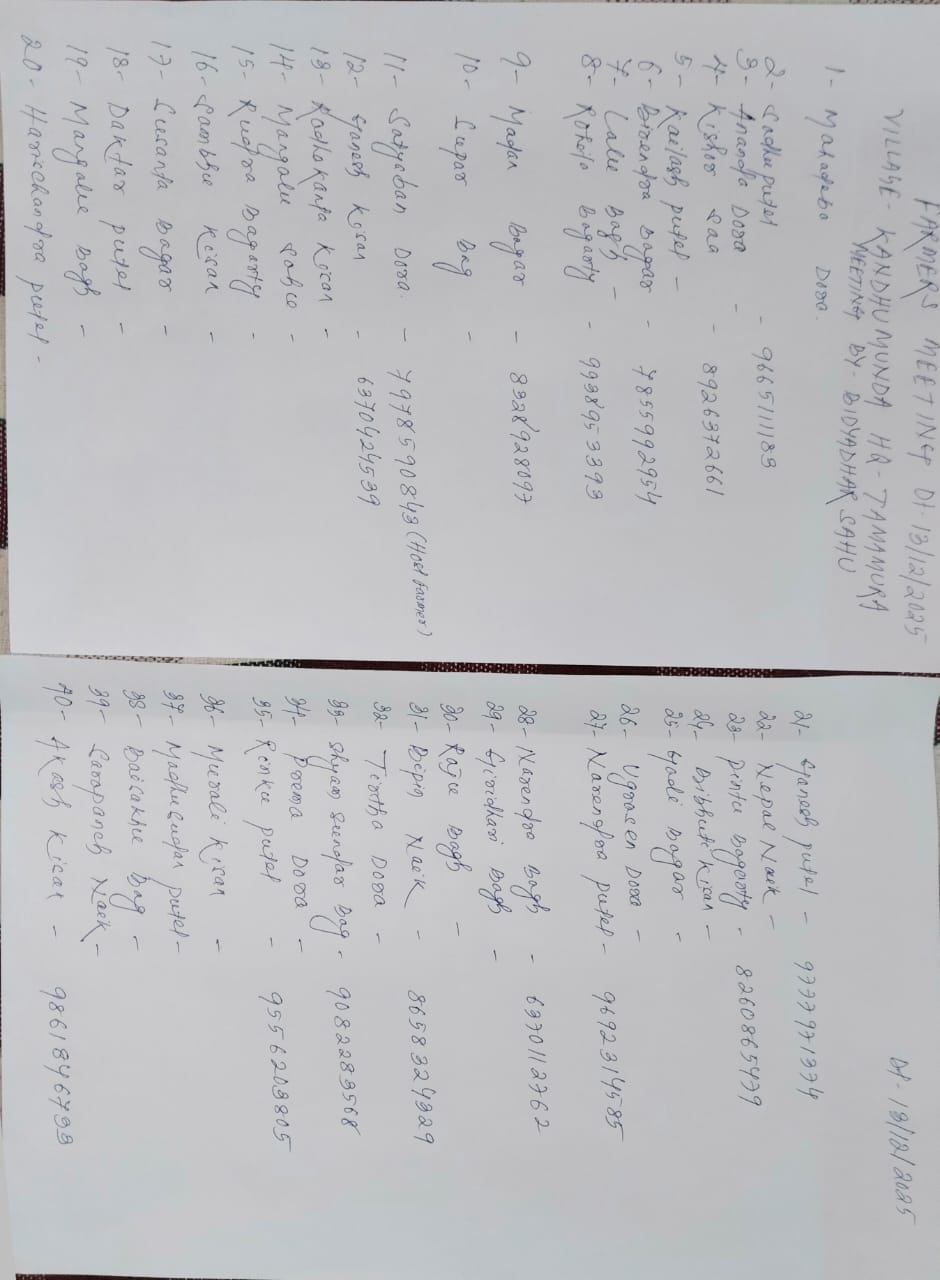 FARMERS MEETING Dt. 13/12/2025
VILLAGE - KANDHUMUNDA HQ - TANAMURA
MEETING BY - BIDYADHAR SAHU
1- Mahadebo Dora.
2- Sadhu putel - 9665111183
3- Ananda Dora -
4- Kishor Sao - 8926372661
5- Kailash putel -
6- Birendra Bagar - 7855992954
7- Lalu Bagh -
8- Rohito Bagarty - 9938953393
9- Madan Bagar - 8328928097
10- Supar Bag -
11- Satyaban Dora. - 7978590843 (Host farmer)
12- Ganesh Kisan - 6370424539
13- Radhakanta Kisan -
14- Mangalu Sabu -
15- Rudra Bagarty -
16- Sambhu Kisan -
17- Susanta Bagar -
18- Daktar putel -
19- Mangalu Bagh -
20- Harischandra putel -
Dt. 13/12/2025
21- Ganesh putel - 9777971374
22- Nepal Naik -
23- pintu Bagarty - 8260865479
24- Bibhuti Kisan -
25- Bagar -
26- Ugrasen Dora -
27- Narendra putel - 9692314585
28- Narendra Bagh - 6370112762
29- Giridhari Bagh -
30- Raju Bagh -
31- Bipin Naik - 8658324329
32- Tirtha Dora -
33- Shyam Sundar Bag - 9082283568
34- Prema Dora -
35- Rinku putel - 9556203805
36- Murali Kisan -
37- Madhusudan putel -
38- Baisakhu Bag -
39- Sarapanch Naik -
40- Akash Kisan - 9861846733